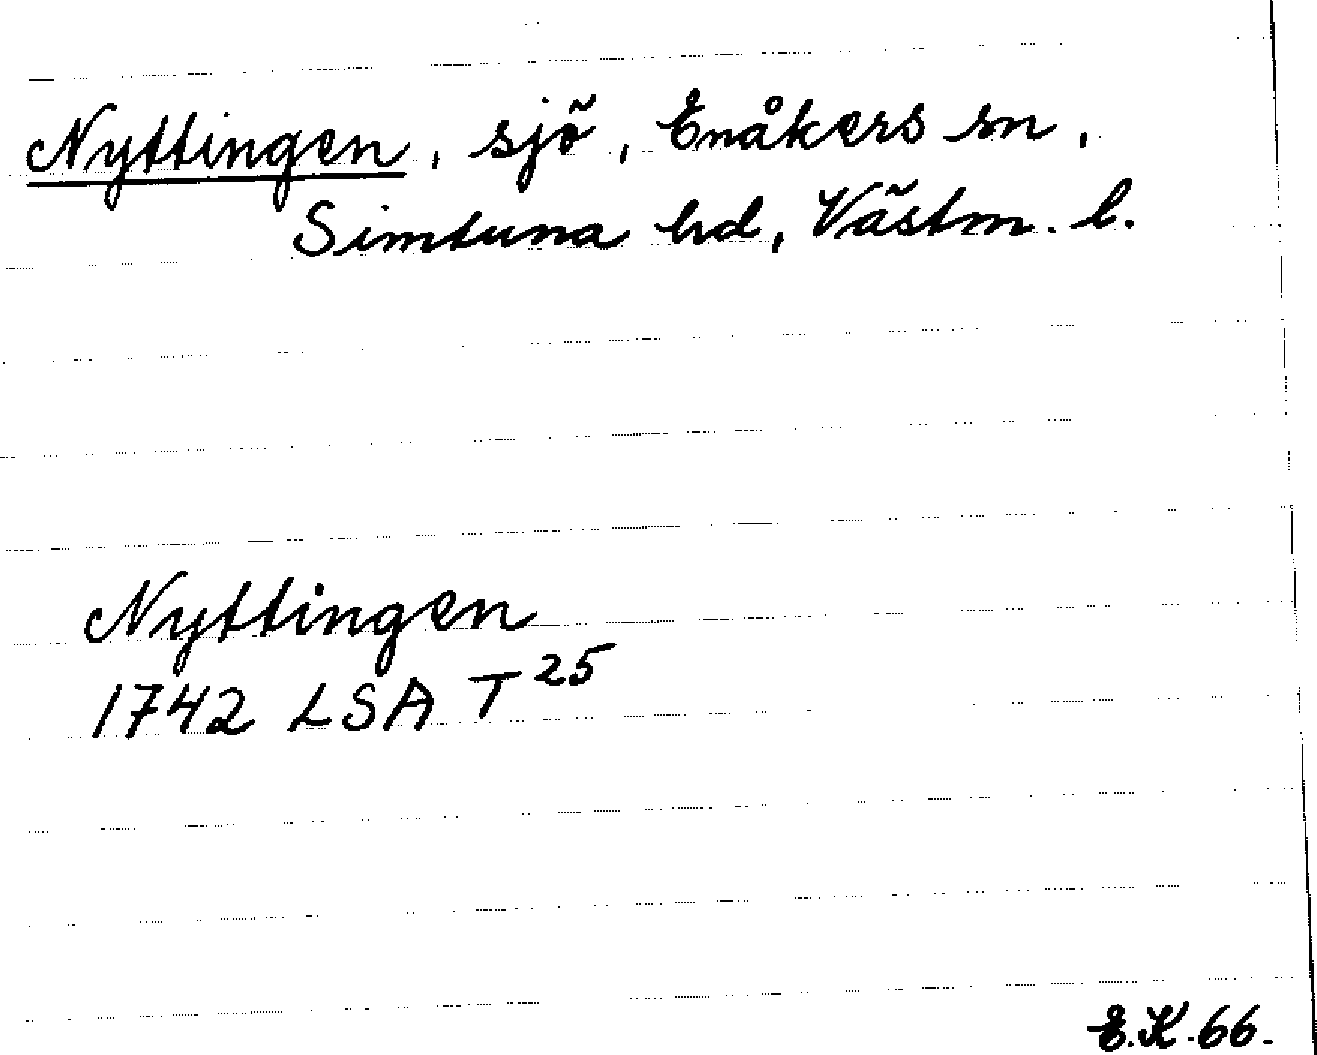 Nyttingen, sjö, Enåkers sn,
Simtuna hd, Västm. l.
Nyttingen
1742 LSA T 25
E.K.66.